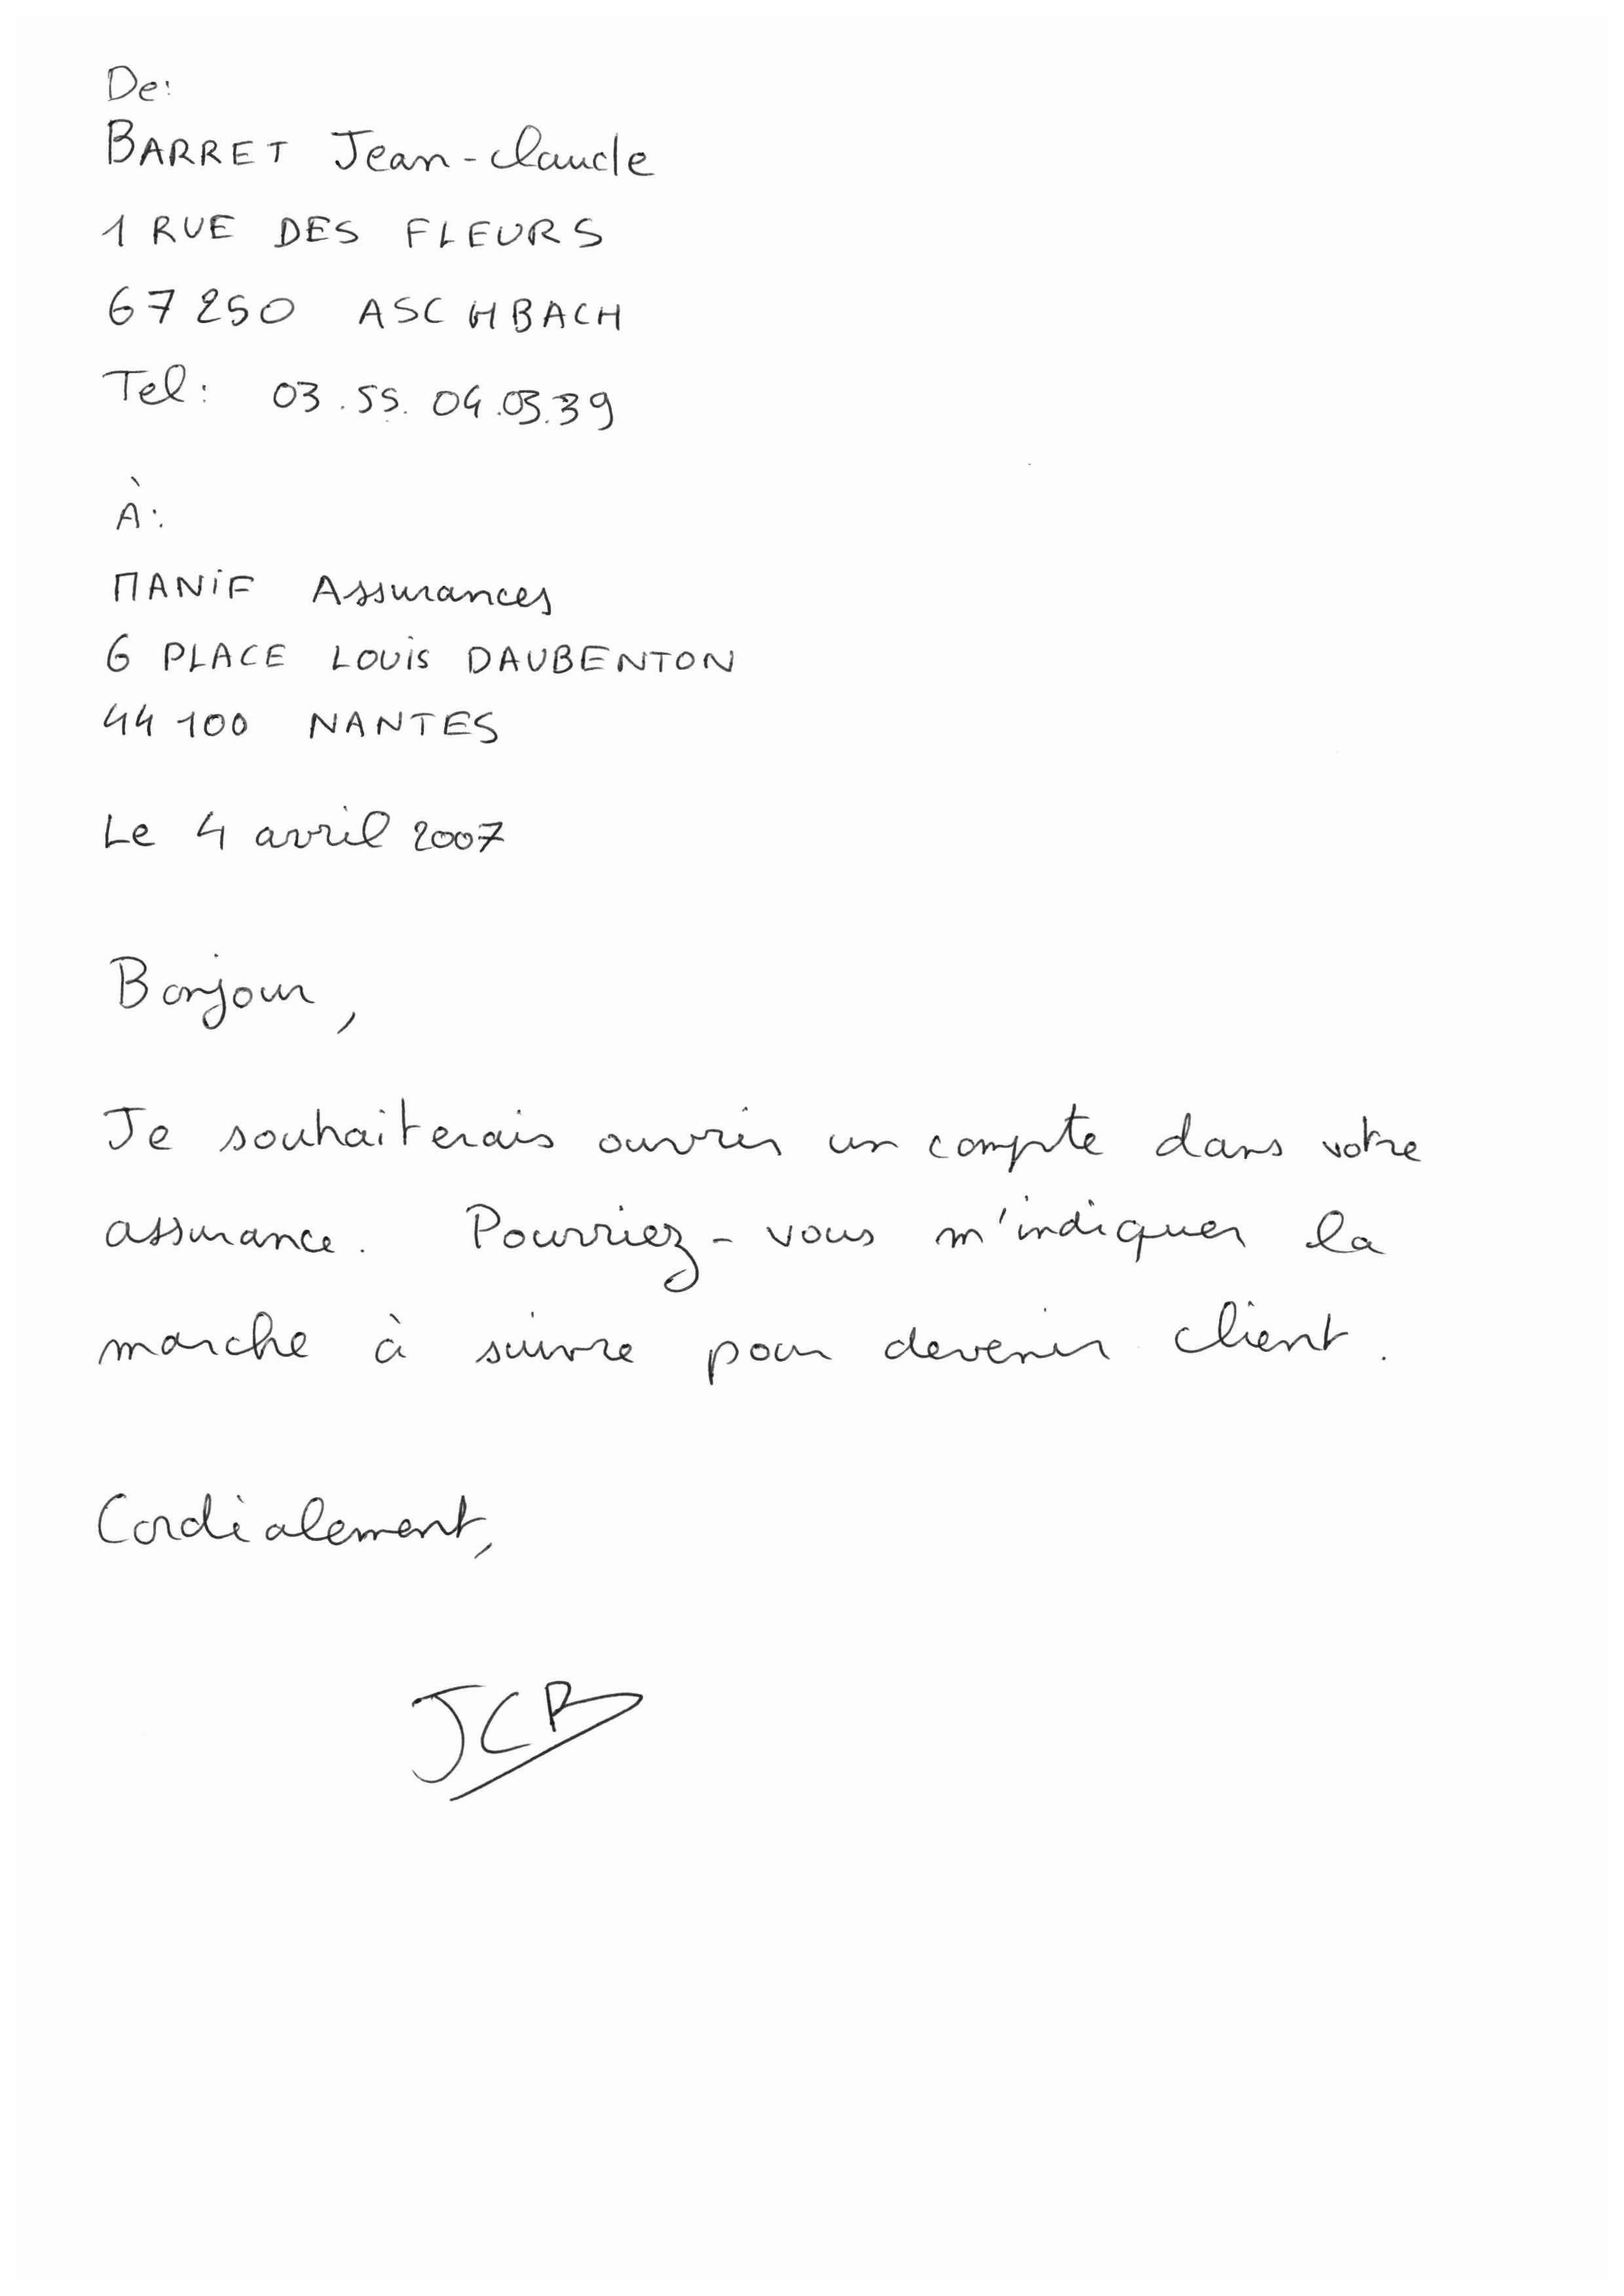 De:
BARRET Jean-Claude
1 RUE DES FLEURS
67250 ASCHBACH
Tel: 03.55.04.03.39
À:
MANIF Assurances
6 PLACE LOUIS DAUBENTON
44100 NANTES
Le 4 avril 2007
Bonjour,
Je souhaiterais ouvrir un compte dans votre
assurance. Pourriez-vous m'indiquer la
marche à suivre pour devenir client.
Cordialement,
JCB